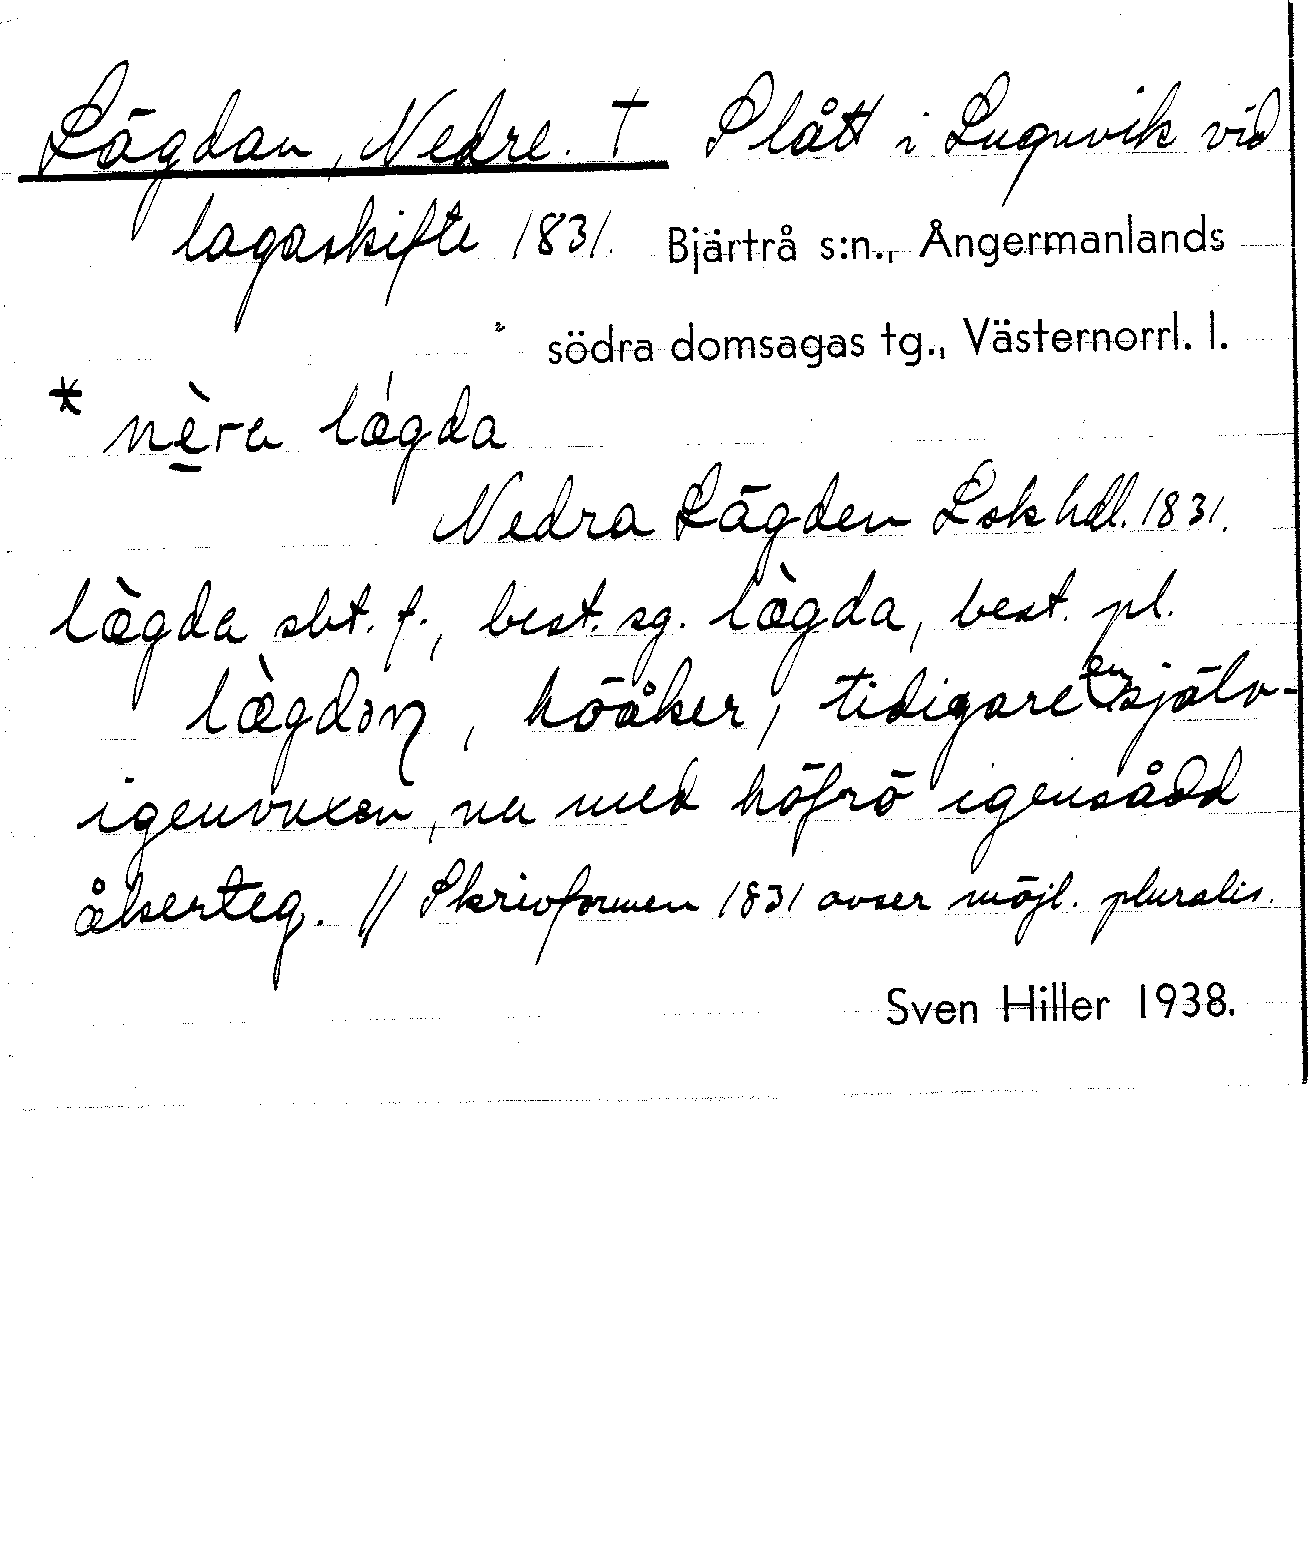 Lägdan, Nedre. † Slått i Lugnvik vid
lagaskifte 1831. Bjärtrå s:n., Ångermanlands
södra domsagas tg., Västernorrl. l.
* nèra lǽgda
Nedra Lägden Lsk hdl. 1831.
læ̀gda sbt. f., best. sg. læ̀gda, best. pl.
læ̀gdɔɳ, höåker; tidigare en själv-
igenvuxen, nu med höfrö igensådd
åkerteg. // Skrivformen 1831 avser möjl. pluralis.
Sven Hiller 1938.